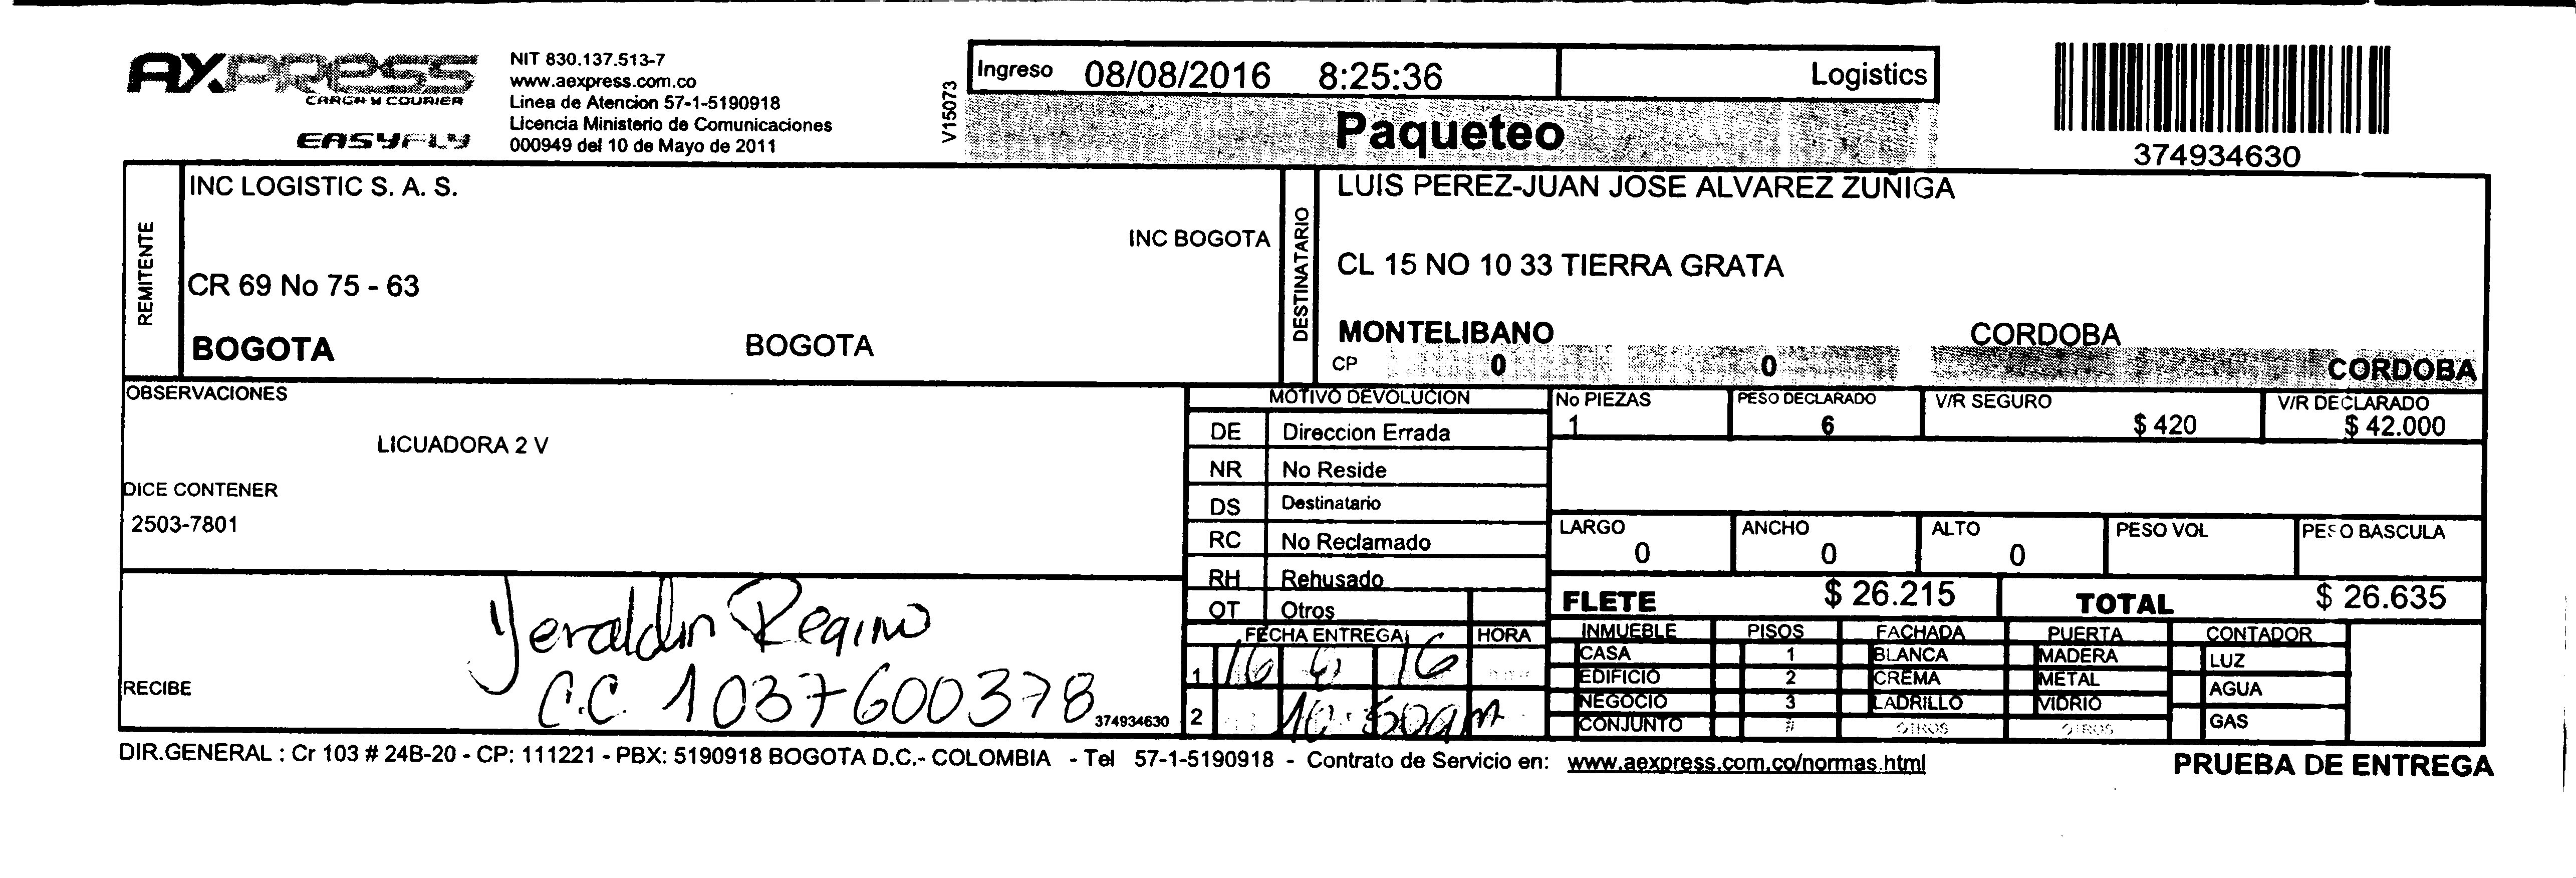 AXPRESS
CARGA Y COURIER
EASYFLY
NIT 830.137.513-7
www.aexpress.com.co
Linea de Atencion 57-1-5190918
Licencia Ministerio de Comunicaciones
000949 del 10 de Mayo de 2011
V15073
Ingreso 08/08/2016 8:25:36 Logistics
Paqueteo
374934630
REMITENTE
INC LOGISTIC S. A. S.
INC BOGOTA
CR 69 No 75 - 63
BOGOTA BOGOTA
DESTINATARIO
LUIS PEREZ-JUAN JOSE ALVAREZ ZUÑIGA
CL 15 NO 10 33 TIERRA GRATA
MONTELIBANO CORDOBA
CP 0 0 CORDOBA
OBSERVACIONES
LICUADORA 2 V
DICE CONTENER
2503-7801
MOTIVO DEVOLUCION
DE Direccion Errada
NR No Reside
DS Destinatario
RC No Reclamado
RH Rehusado
OT Otros
No PIEZAS PESO DECLARADO V/R SEGURO V/R DECLARADO
1 6 $ 420 $ 42.000
LARGO ANCHO ALTO PESO VOL PESO BASCULA
0 0 0
FLETE $ 26.215 TOTAL $ 26.635
RECIBE
Yeraldin Regino
C.C. 1037600378
374934630
FECHA ENTREGA HORA
1 16 16
2 10:50am
INMUEBLE PISOS FACHADA PUERTA CONTADOR
CASA 1 BLANCA MADERA LUZ
EDIFICIO 2 CREMA METAL AGUA
NEGOCIO 3 LADRILLO VIDRIO GAS
CONJUNTO # OTROS OTROS
DIR.GENERAL : Cr 103 # 24B-20 - CP: 111221 - PBX: 5190918 BOGOTA D.C.- COLOMBIA - Tel 57-1-5190918 - Contrato de Servicio en: www.aexpress.com.co/normas.html
PRUEBA DE ENTREGA